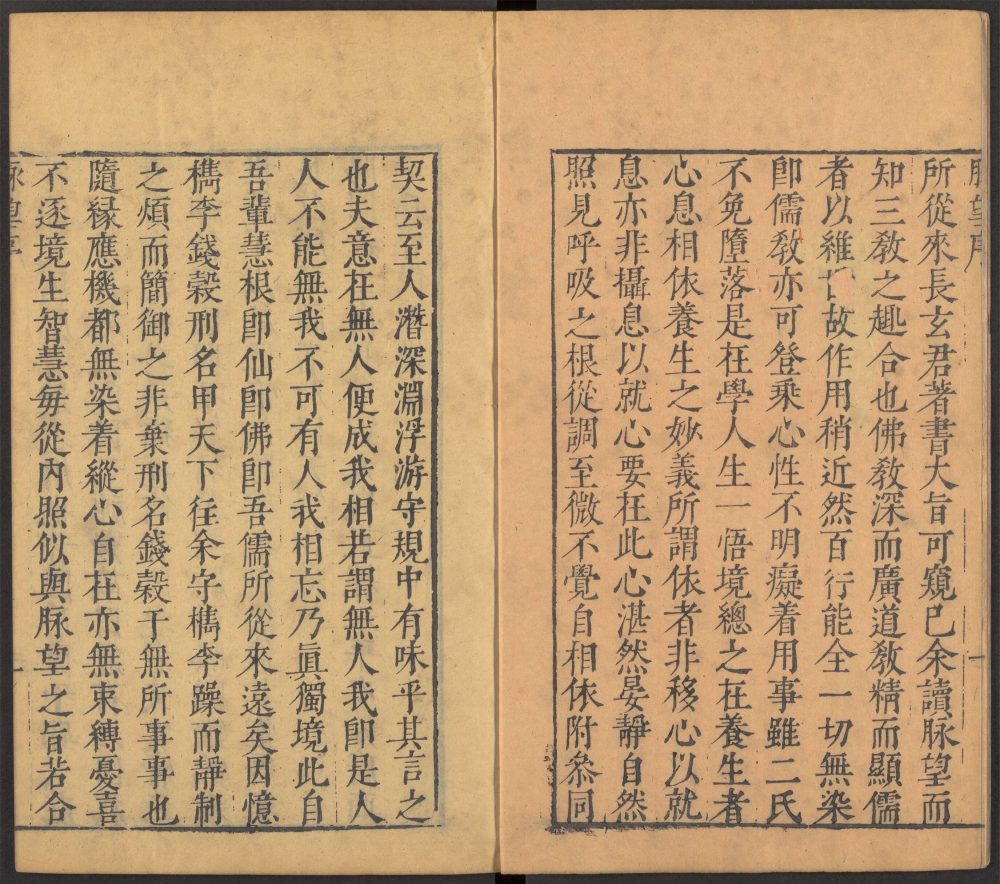 脉望序
所從來長玄君著書大旨可窺巳余讀脉望而
知三敎之趣合也佛敎深而廣道敎精而顯儒
者以維故作用稍近然百行能全一切無染
卽儒敎亦可登乘心性不明癡着用事雖二氏
不免墮落是在學人生一悟境總之在養生者
心息相依養生之妙義所謂依者非移心以就
息亦非攝息以就心要在此心湛然晏靜自然
照見呼吸之根從調至微不覺自相依附參同
契云至人潛深淵浮游守規中有味乎其言之
也夫意在無人便成我相若謂無人我卽是人
人不能無我不可有人我相忘乃眞獨境此自
吾輩慧根卽仙卽佛卽吾儒所從來遠矣因憶
檇李錢穀刑名甲天下往余守檇李躁而靜制
之煩而簡御之非棄刑名錢穀于無所事事也
隨緣應機都無染着縱心自在亦無束縛憂喜
不逐境生智慧每從內照似與脉望之旨若合
脉望序